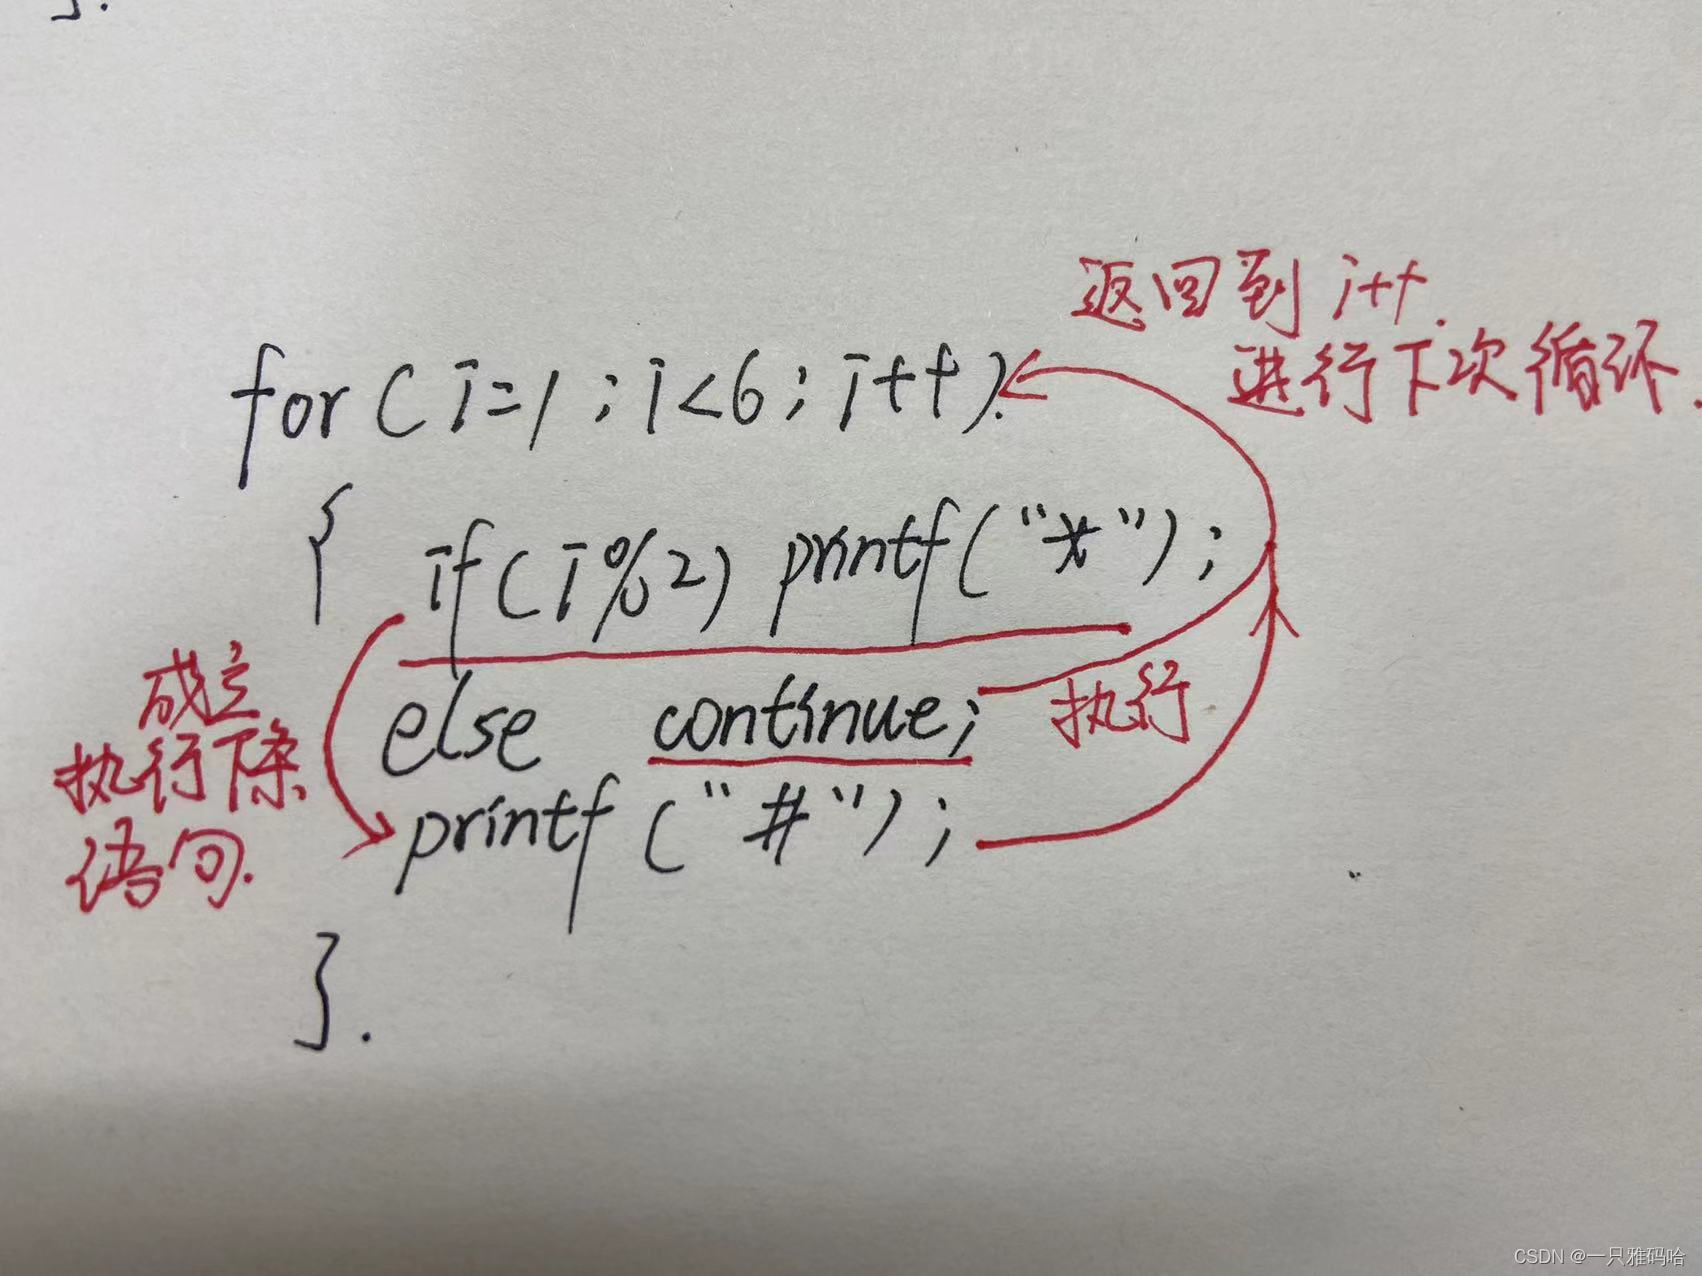 }.
返回到 i++.
进行下次循环.
for(i=1;i<6;i++).
{ if(i%2) printf("*");
else continue; 执行
成立
执行下条
语句.
printf("#");
}.
CSDN @一只雅码哈